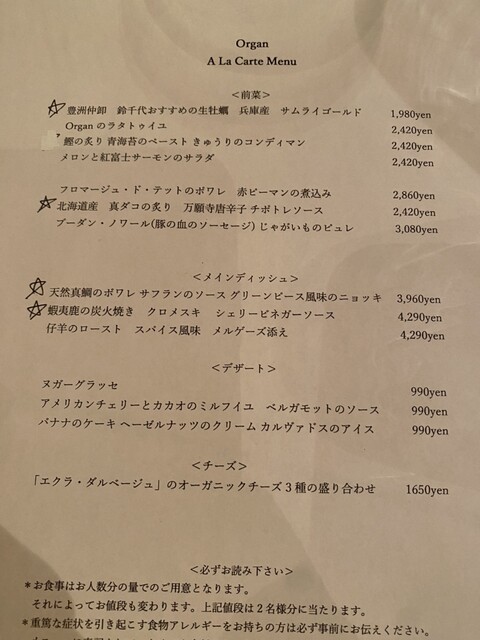 Organ
A La Carte Menu
＜前菜＞
豊洲仲卸　鈴千代おすすめの生牡蠣　兵庫産　サムライゴールド 1,980yen
Organ のラタトゥイユ 2,420yen
鰹の炙り 青海苔のペースト きゅうりのコンディマン 2,420yen
メロンと紅富士サーモンのサラダ 2,420yen
フロマージュ・ド・テットのポワレ　赤ピーマンの煮込み 2,860yen
北海道産　真ダコの炙り　万願寺唐辛子 チポトレソース 2,420yen
ブーダン・ノワール(豚の血のソーセージ) じゃがいものピュレ 3,080yen
＜メインディッシュ＞
天然真鯛のポワレ サフランのソース グリーンピース風味のニョッキ 3,960yen
蝦夷鹿の炭火焼き　クロメスキ　シェリービネガーソース 4,290yen
仔羊のロースト　スパイス風味　メルゲーズ添え 4,290yen
＜デザート＞
ヌガーグラッセ 990yen
アメリカンチェリーとカカオのミルフイユ　ベルガモットのソース 990yen
バナナのケーキ ヘーゼルナッツのクリーム カルヴァドスのアイス 990yen
＜チーズ＞
「エクラ・ダルページュ」のオーガニックチーズ 3 種の盛り合わせ 1650yen
＜必ずお読み下さい＞
＊お食事はお人数分の量でのご用意となります。
それによってお値段も変わります。上記値段は 2 名様分に当たります。
＊重篤な症状を引き起こす食物アレルギーをお持ちの方は必ず事前にお伝えください。